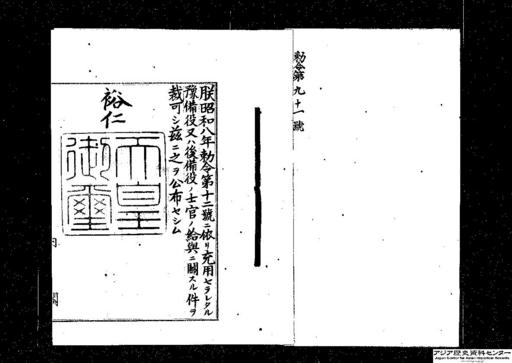 勅令第九十一號
朕昭和八年勅令第十二號ニ依リ充用セラレタル
豫備役又ハ後備役ノ士官ノ給與ニ關スル件ヲ
裁可シ茲ニ之ヲ公布セシム
裕仁
天皇
御璽
内閣
アジア歴史資料センター
Japan Center for Asian Historical Records